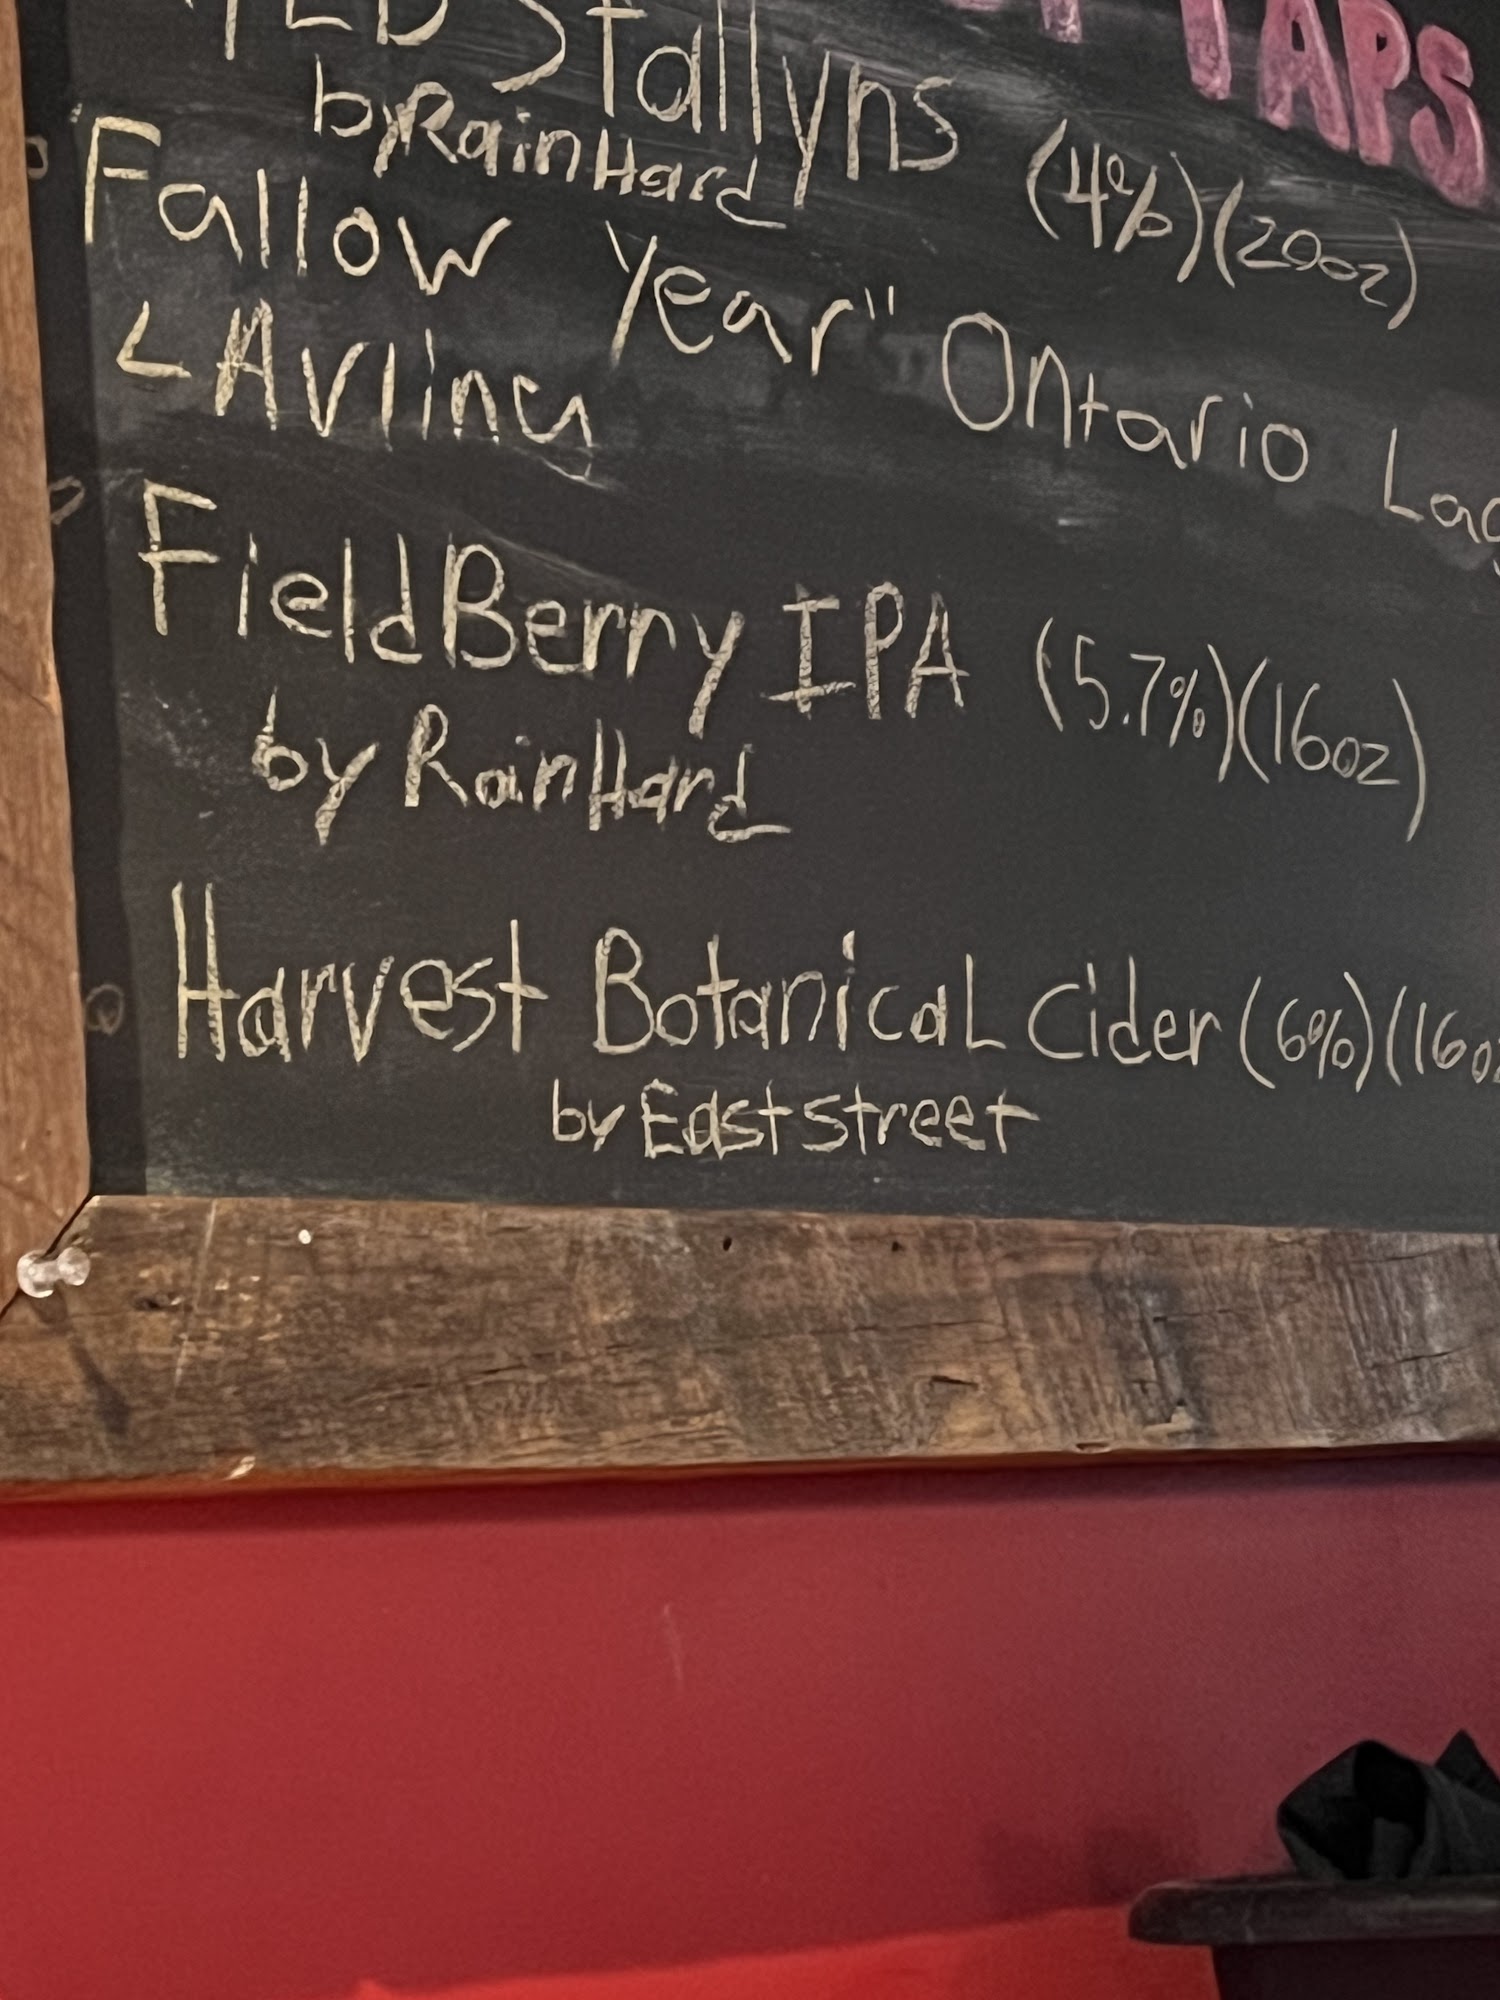 TAPS
Stallyns (4%)(20oz)
by RainHard
Fallow Year" Ontario
< Avling
FieldBerry IPA (5.7%)(16oz)
by RainHard
Harvest Botanical Cider (6%)(16oz
by East street